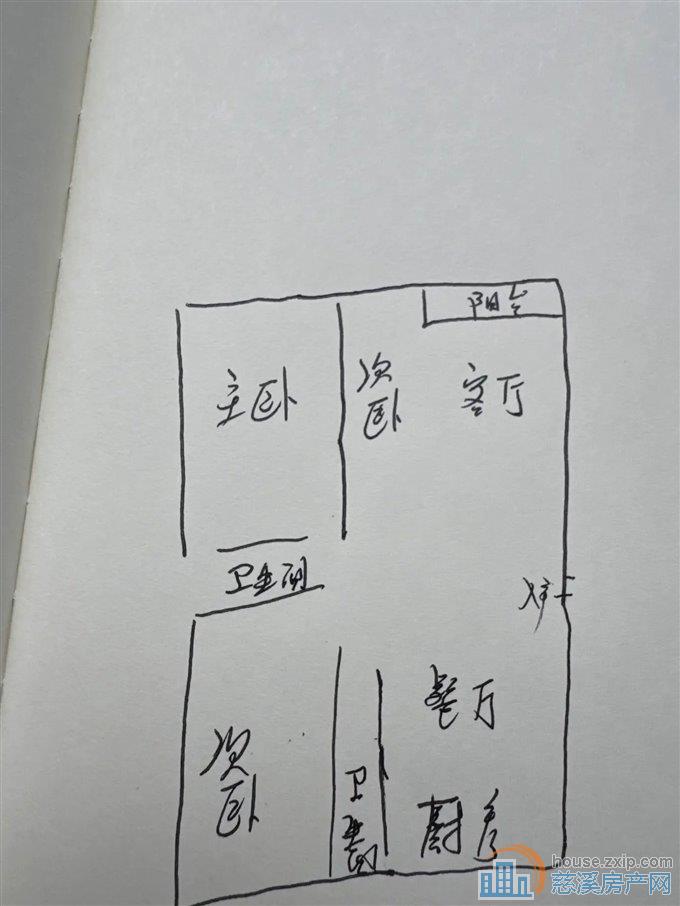 阳台
主卧
次卧
客厅
卫生间
入户
餐厅
次卧
卫生间
厨房
house.zxip.com
慈溪房产网